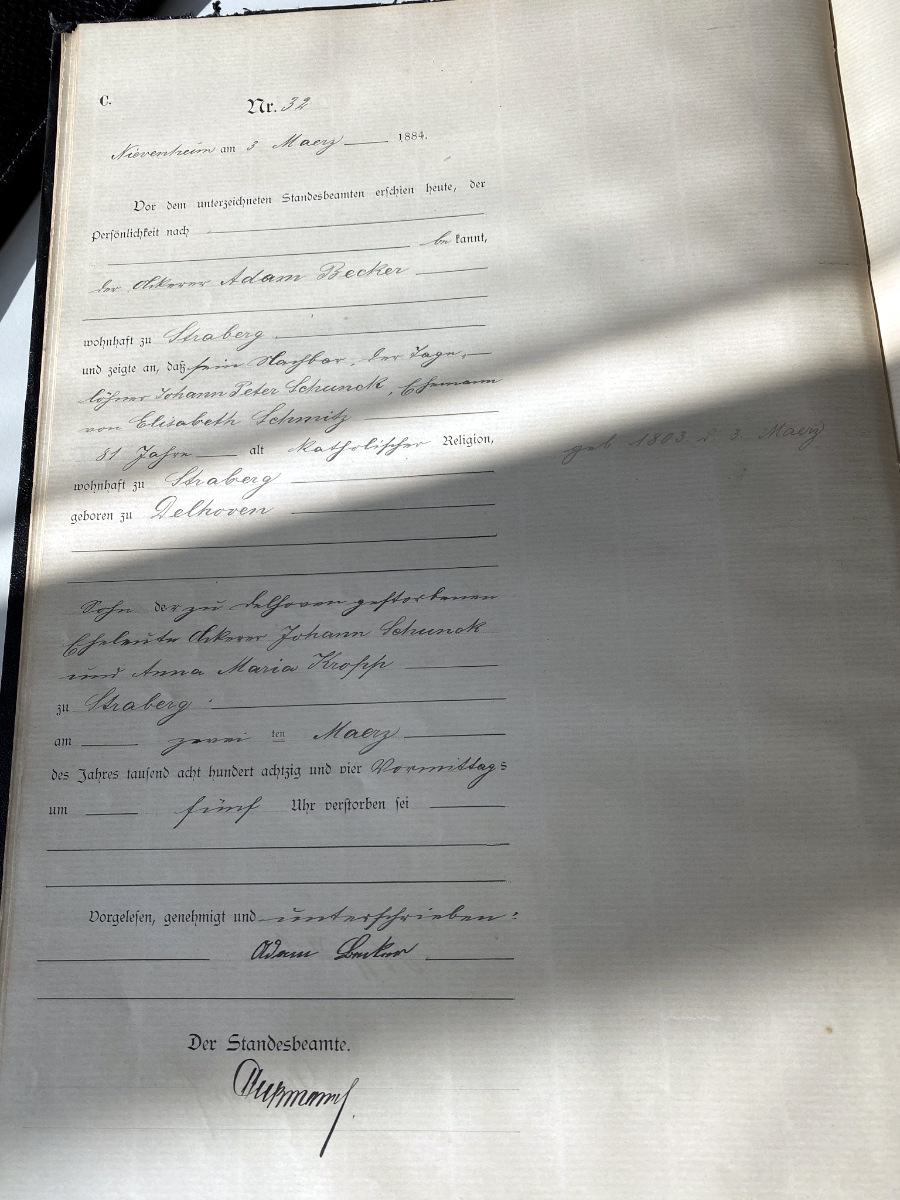 C.
Nr. 32
Nievenheim am 3 Maerz 1884.
Vor dem unterzeichneten Standesbeamten erschien heute, der
Persönlichkeit nach
be kannt,
der Ackerer Adam Becker
wohnhaft zu Straberg
und zeigte an, daß sein Nachbar, der Tage-
löhner Johann Peter Schunck, Ehemann
von Elisabeth Schmitz
81 Jahre alt katholischer Religion,
wohnhaft zu Straberg
geboren zu Delhoven
geb. 1803 d. 3. Maerz
Sohn der zu Delhoven gestorbenen
Eheleute Ackerer Johann Schunck
und Anna Maria Kropp
zu Straberg
am zwei ten Maerz
des Jahres tausend acht hundert achtzig und vier Vormittags
um fünf Uhr verstorben sei
Vorgelesen, genehmigt und unterschrieben:
Adam Becker
Der Standesbeamte.